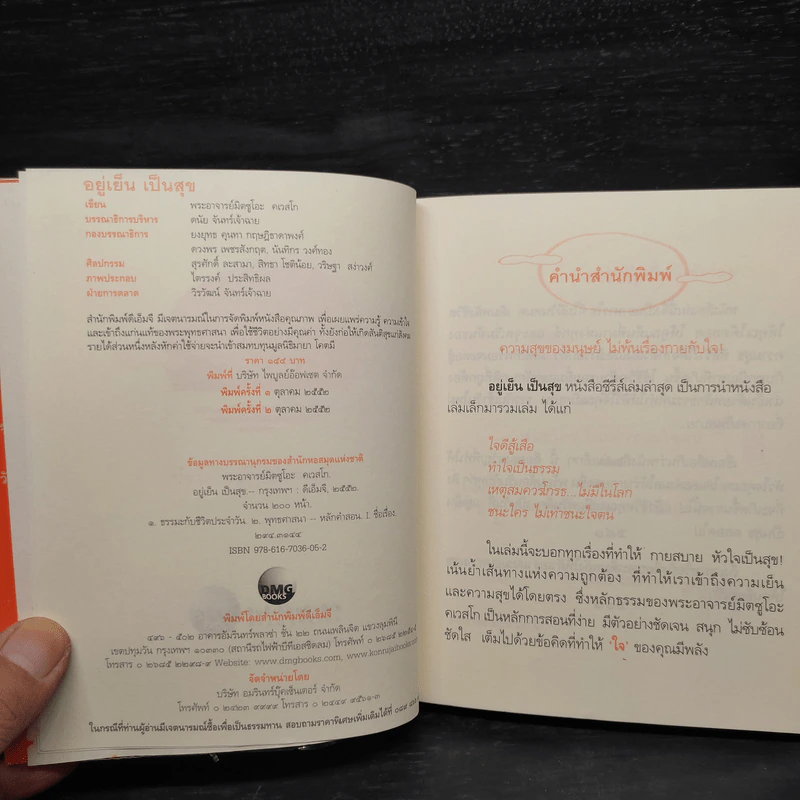 อยู่เย็น เป็นสุข
เขียน พระอาจารย์มิตซูโอะ คเวสโก
บรรณาธิการบริหาร ดนัย จันทร์เจ้าฉาย
กองบรรณาธิการ ยงยุทธ คุนทา กฤษฎิธาดาพงศ์
ดวงพร เพชรสังกฤต, นันทิกร วงศ์ทอง
ศิลปกรรม สุรศักดิ์ ละลามา, สิทธา โชติน้อย, วริษฐา สง่าวงศ์
ภาพประกอบ ไตรรงค์ ประสิทธิผล
ฝ่ายการตลาด วีรวัฒน์ จันทร์เจ้าฉาย
สำนักพิมพ์ดีเอ็มจี มีเจตนารมณ์ในการจัดพิมพ์หนังสือคุณภาพ เพื่อเผยแพร่ความรู้ ความเข้าใจ
และเข้าถึงแก่นแท้ของพระพุทธศาสนา เพื่อใช้ชีวิตอย่างมีคุณค่า ทั้งยังก่อให้เกิดสันติสุขแก่สังคม
รายได้ส่วนหนึ่งหลังหักค่าใช้จ่ายจะนำเข้าสมทบทุนมูลนิธิมายา โคตมี
ราคา ๑๔๔ บาท
พิมพ์ที่ บริษัท ไพบูลย์อ๊อฟเซต จำกัด
พิมพ์ครั้งที่ ๑ ตุลาคม ๒๕๕๒
พิมพ์ครั้งที่ ๒ ตุลาคม ๒๕๕๒
ข้อมูลทางบรรณานุกรมของสำนักหอสมุดแห่งชาติ
พระอาจารย์มิตซูโอะ คเวสโก.
อยู่เย็น เป็นสุข.-- กรุงเทพฯ : ดีเอ็มจี, ๒๕๕๒.
จำนวน ๒๐๐ หน้า.
๑. ธรรมะกับชีวิตประจำวัน. ๒. พุทธศาสนา -- หลักคำสอน. I. ชื่อเรื่อง.
๒๙๔.๓๑๔๔
ISBN 978-616-7036-05-2
DMG
BOOKS
พิมพ์โดยสำนักพิมพ์ดีเอ็มจี
๔๙๖ - ๕๐๒ อาคารอัมรินทร์พลาซ่า ชั้น ๒๒ ถนนเพลินจิต แขวงลุมพินี
เขตปทุมวัน กรุงเทพฯ ๑๐๓๓๐ (สถานีรถไฟฟ้าบีทีเอสชิดลม) โทรศัพท์ ๐ ๒๖๘๕
โทรสาร ๐ ๒๖๘๕ ๒๒๙๘-๙ Website: www.dmgbooks.com,
จัดจำหน่ายโดย
บริษัท อมรินทร์บุ๊คเซ็นเตอร์ จำกัด
โทรศัพท์ ๐ ๒๔๒๓ ๙๙๙๙ โทรสาร ๐ ๒๔๔๙ ๙๕๖๑-๓
ในกรณีที่ท่านผู้อ่านมีเจตนารมณ์ซื้อเพื่อเป็นธรรมทาน สอบถามราคาพิเศษเพิ่มเติมได้ที่
คำนำสำนักพิมพ์
ความสุขของมนุษย์ ไม่พ้นเรื่องกายกับใจ!
อยู่เย็น เป็นสุข หนังสือซีรี่ส์เล่มล่าสุด เป็นการนำหนังสือ
เล่มเล็กมารวมเล่ม ได้แก่
ใจดีสู้เสือ
ทำใจเป็นธรรม
เหตุสมควรโกรธ...ไม่มีในโลก
ชนะใคร ไม่เท่าชนะใจตน
ในเล่มนี้จะบอกทุกเรื่องที่ทำให้ กายสบาย หัวใจเป็นสุข!
เน้นย้ำเส้นทางแห่งความถูกต้อง ที่ทำให้เราเข้าถึงความเย็น
และความสุขได้โดยตรง ซึ่งหลักธรรมของพระอาจารย์มิตซูโอะ
คเวสโก เป็นหลักการสอนที่ง่าย มีตัวอย่างชัดเจน สนุก ไม่ซับซ้อน
ชัดใส เต็มไปด้วยข้อคิดที่ทำให้ 'ใจ' ของคุณมีพลัง